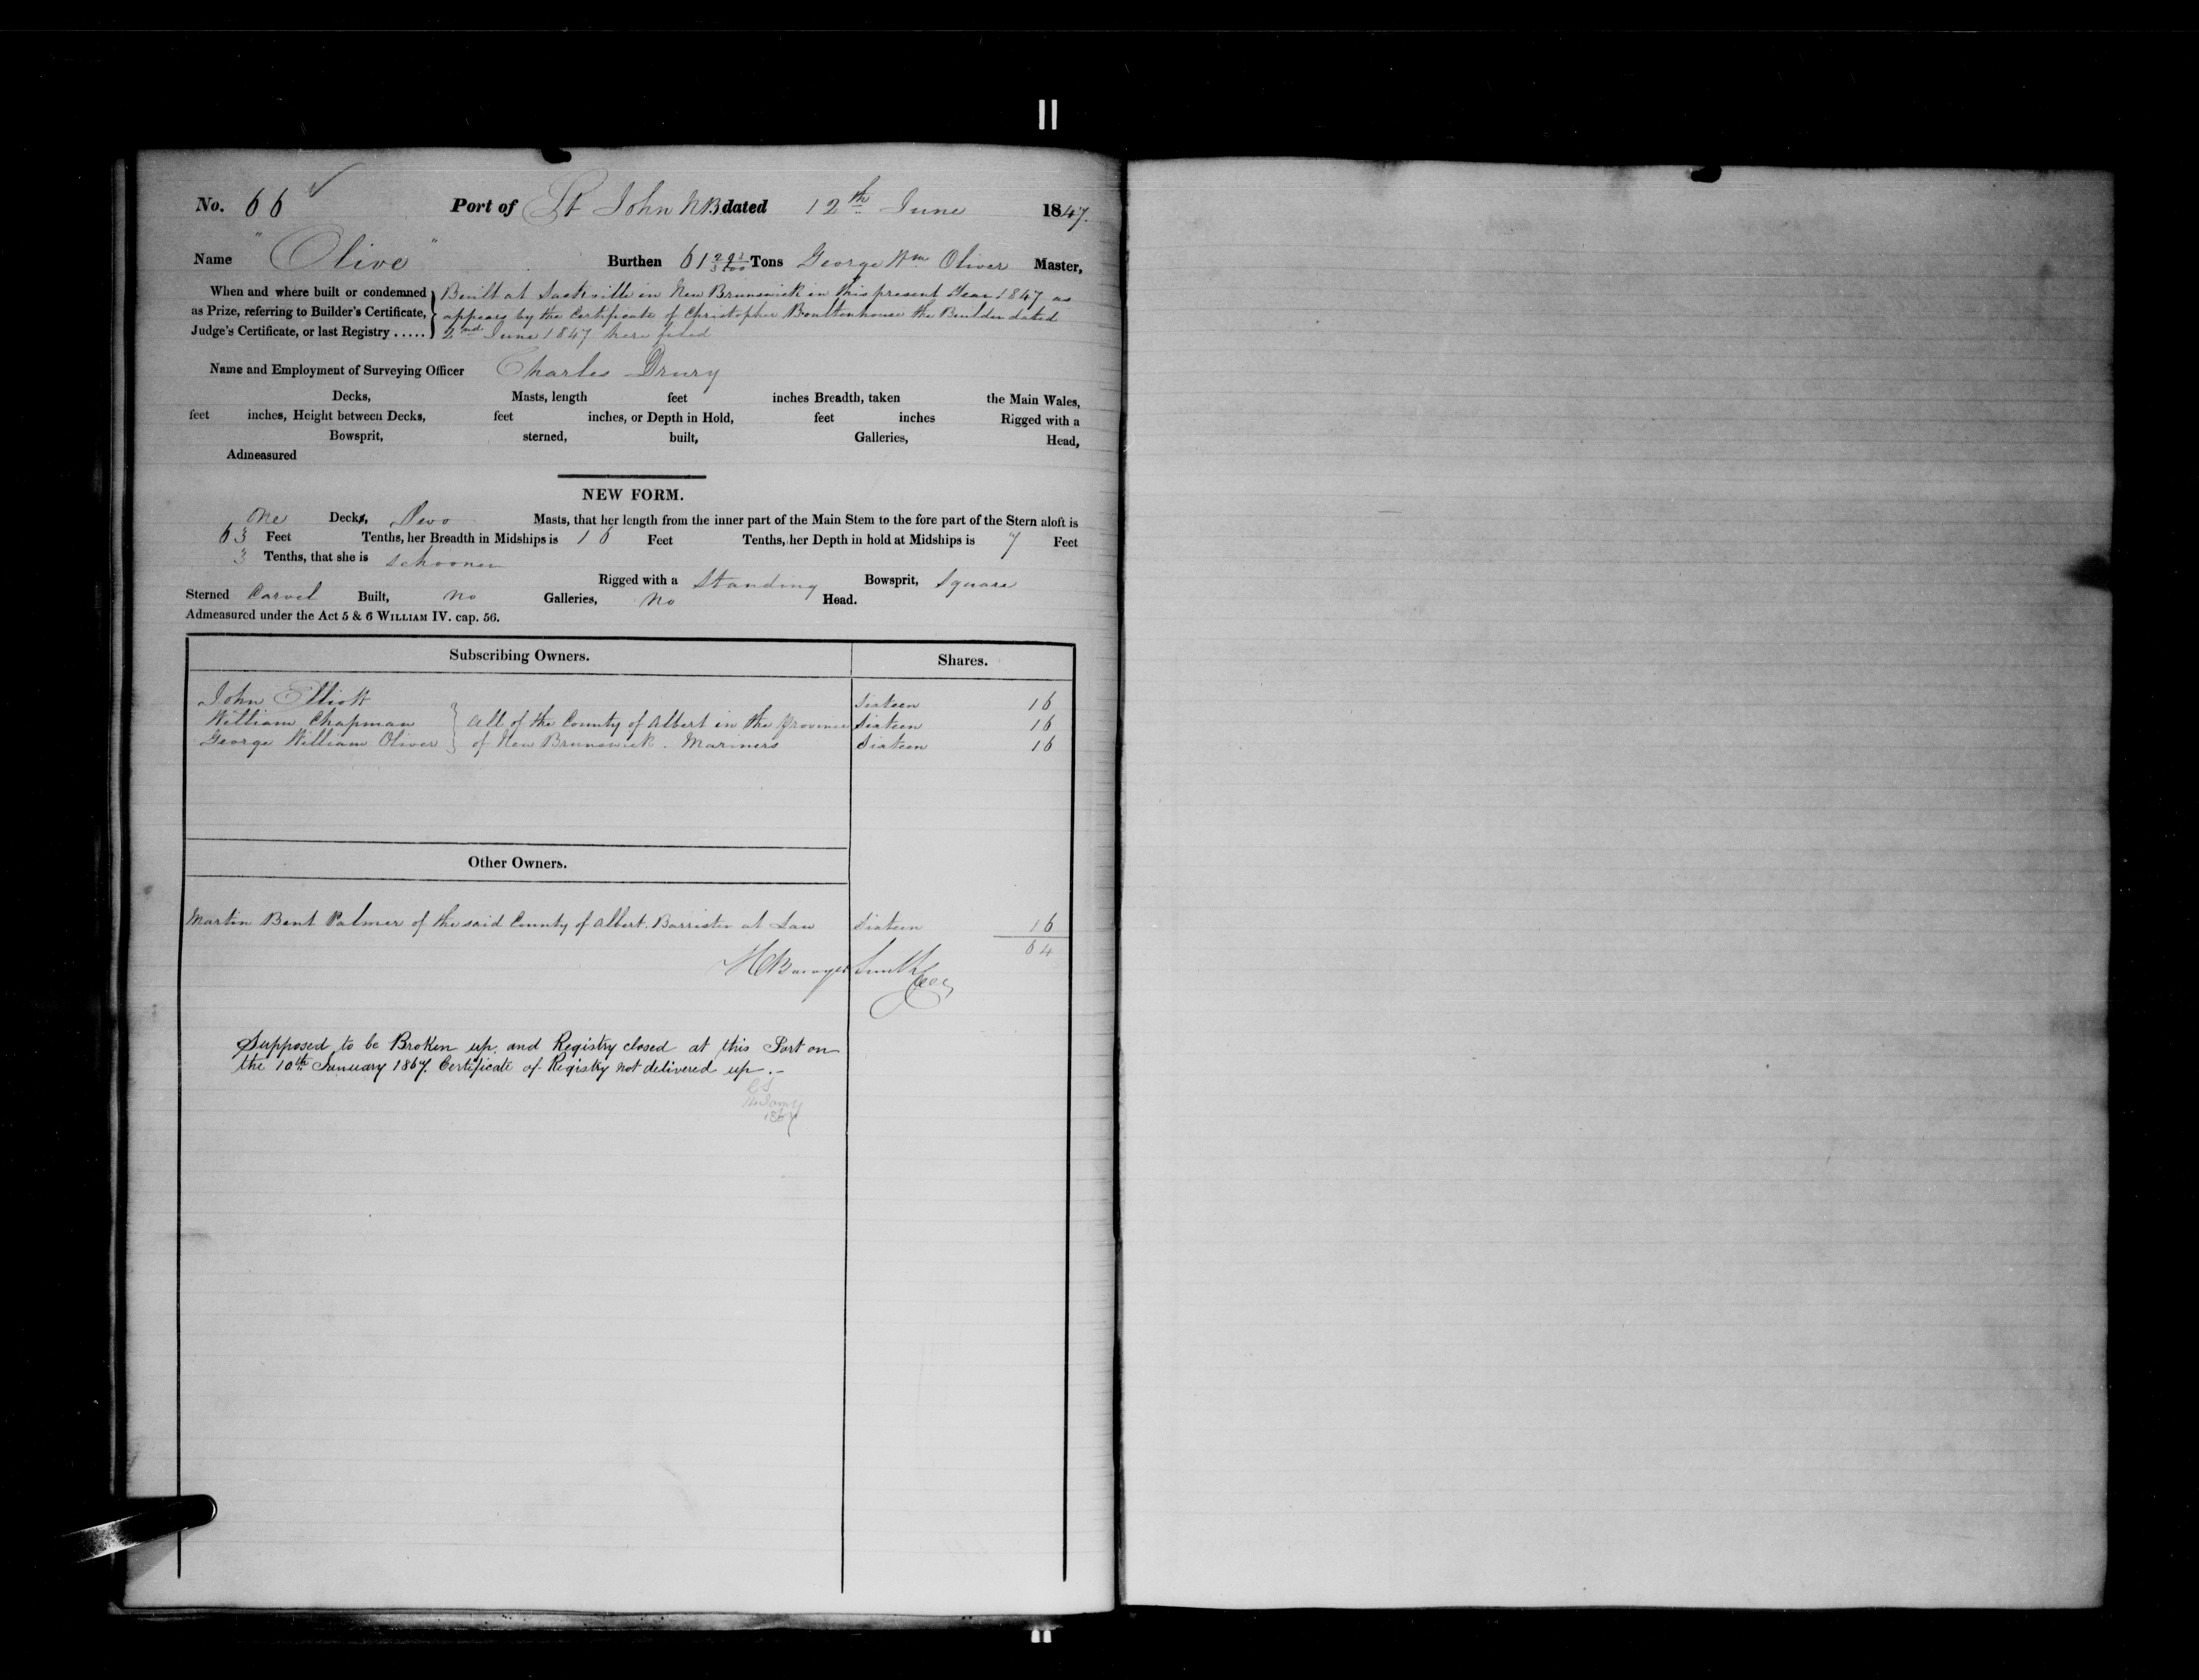 No. 66 Port of St John NB dated 12th June 1847.
Name "Olive" Burthen 61 Tons George Wm Oliver Master,
When and where built or condemned Built at Sackville in New Brunswick in this present Year 1847 as
as Prize, referring to Builder's Certificate, appears by the Certificate of Christopher Boultenhouse the Builder dated
Judge's Certificate, or last Registry ..... 2nd June 1847 here filed
Name and Employment of Surveying Officer Charles Drury
Decks, Masts, length feet inches Breadth, taken the Main Wales,
feet inches, Height between Decks, feet inches, or Depth in Hold, feet inches Rigged with a
Bowsprit, sterned, built, Galleries, Head,
Admeasured
NEW FORM.
One Deck, Two Masts, that her length from the inner part of the Main Stem to the fore part of the Stern aloft is
63 Feet Tenths, her Breadth in Midships is 16 Feet Tenths, her Depth in hold at Midships is 7 Feet
3 Tenths, that she is Schooner
Rigged with a Standing Bowsprit, Square
Sterned Carvel Built, no Galleries, No Head.
Admeasured under the Act 5 & 6 WILLIAM IV. cap. 56.
Subscribing Owners. Shares.
John Elliott Sixteen 16
William Chapman } All of the County of Albert in the Province Sixteen 16
George William Oliver } of New Brunswick. Mariners Sixteen 16
Other Owners.
Martin Bent Palmer of the said County of Albert. Barrister at Law Sixteen 16
64
Smith
Supposed to be Broken up. and Registry closed at this Port on
the 10th January 1867. Certificate of Registry not delivered up.-
1867